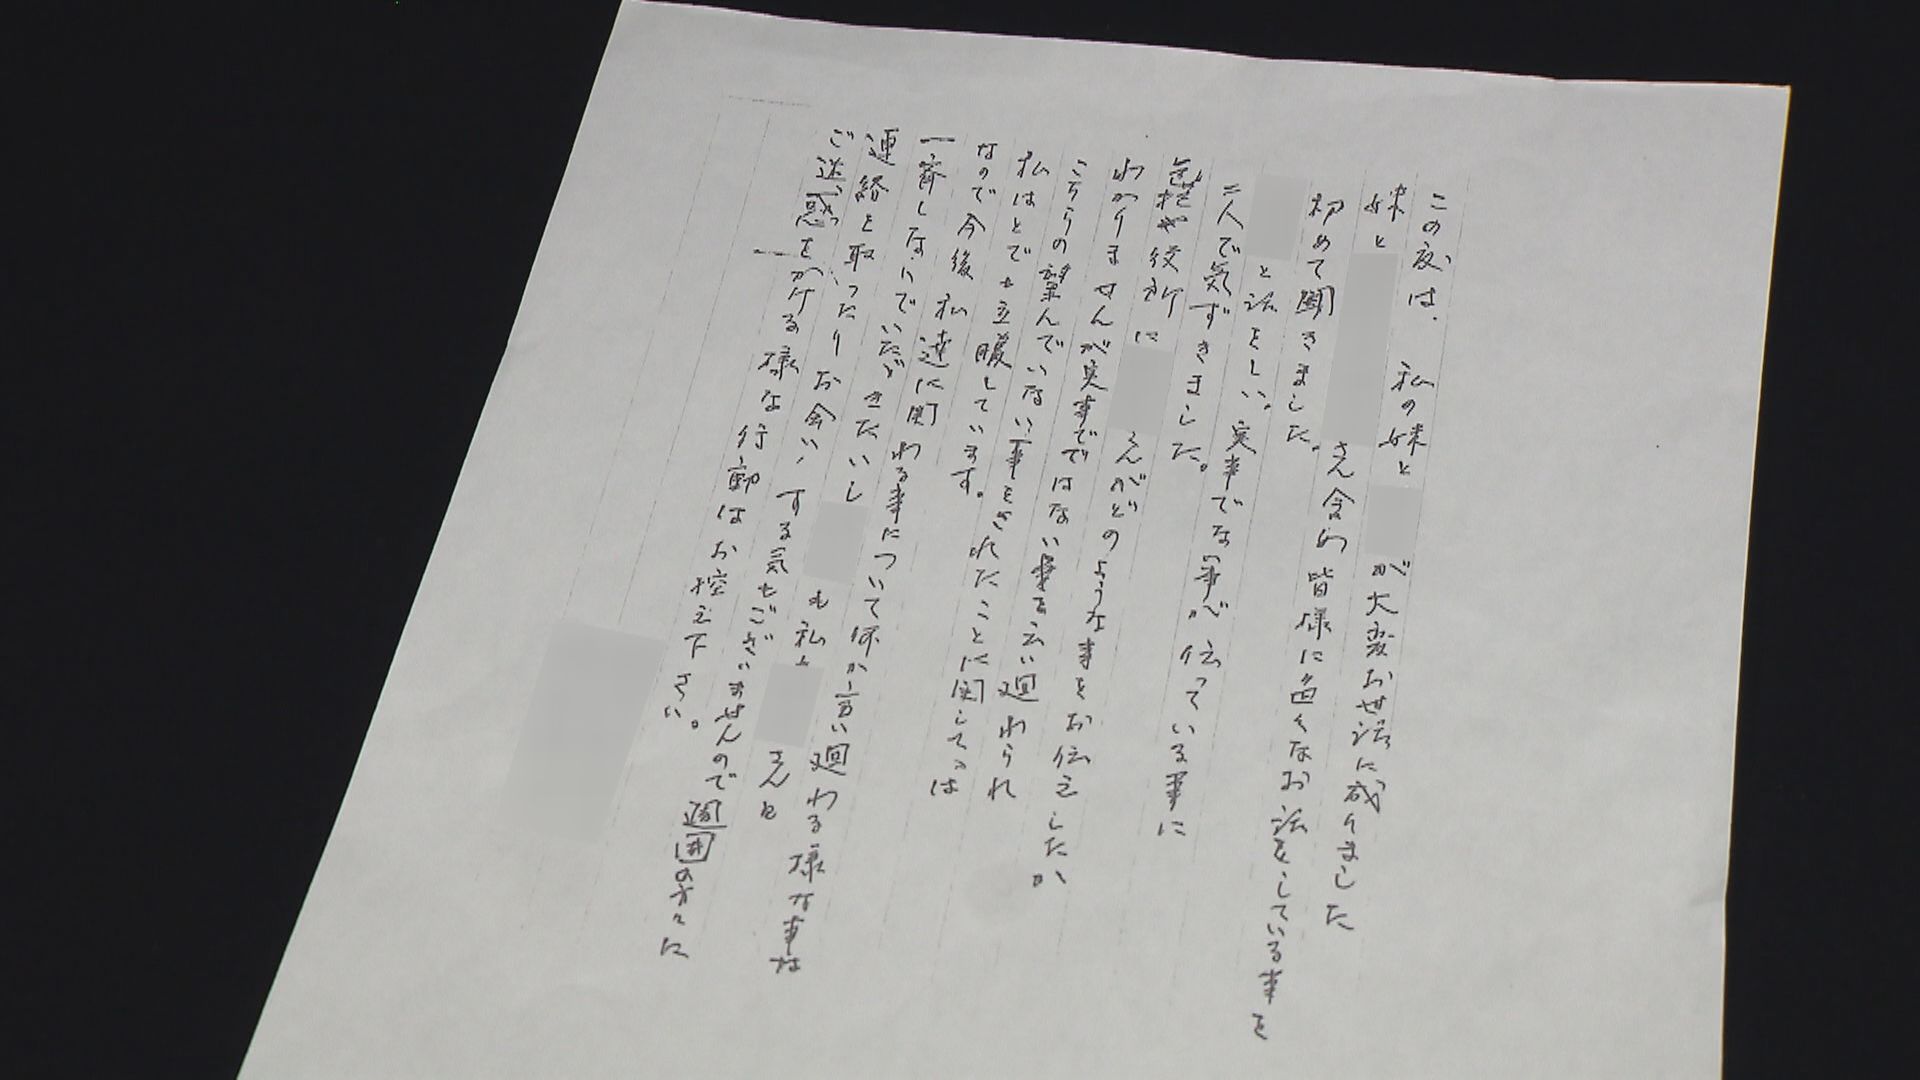 この度は、私の妹と が大変お世話に成りました
妹と さん含め皆様に色々なお話をしている事を
初めて聞きました。
と話をし、実事でない事が伝っている事に
二人で気ずきました。
包括や役所に さんがどのような事をお伝えしたか
わかりませんが実事でではない事を云い廻わられ
こちらの望んでいない事をされたことに関しては
私はとても立腹しています。
なので今後私達に関わる事について何か言い廻わる様な事は
一斉しないでいただきたいし も私も さんと
連絡を取ったりお会いする気もございませんので周囲の方々に
ご迷惑をかける様な行動はお控え下さい。